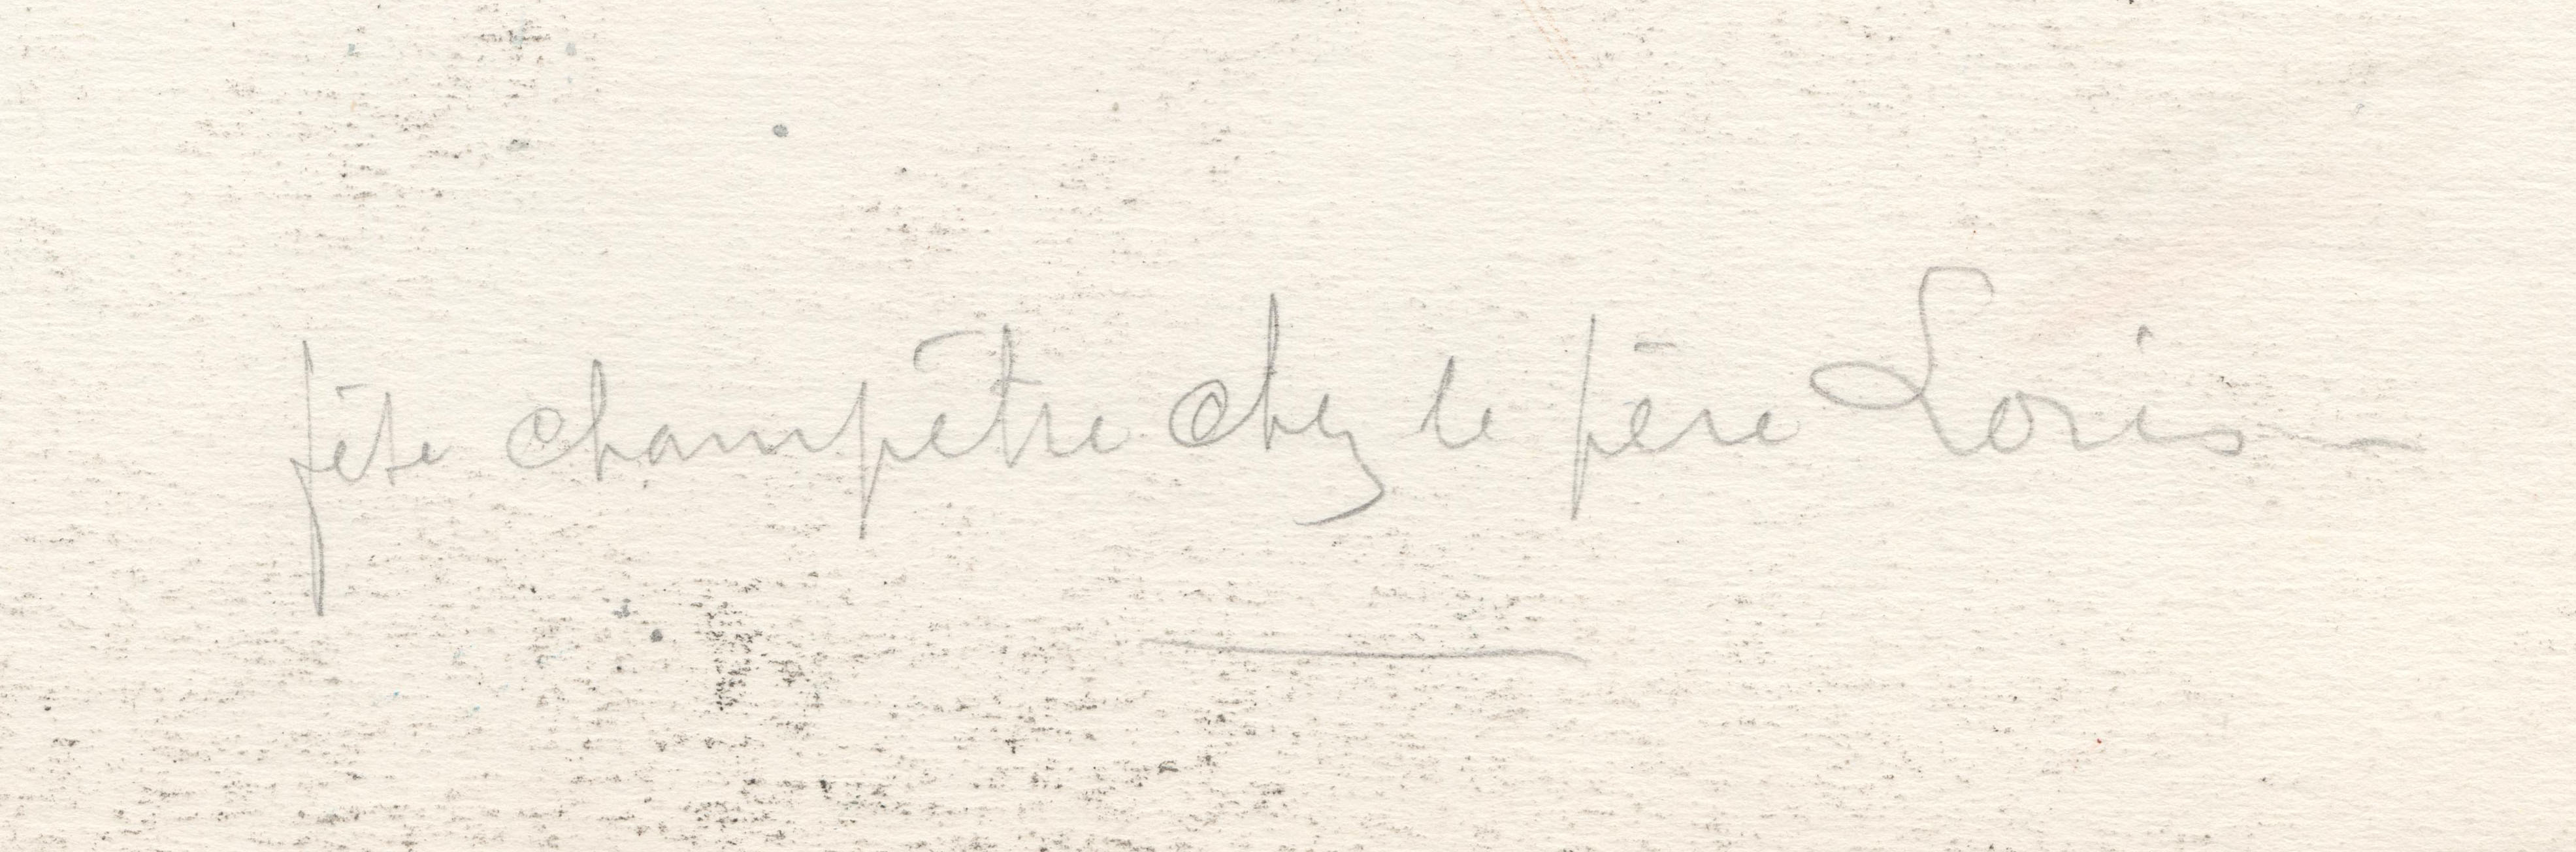 fête champêtre chez le père Loris